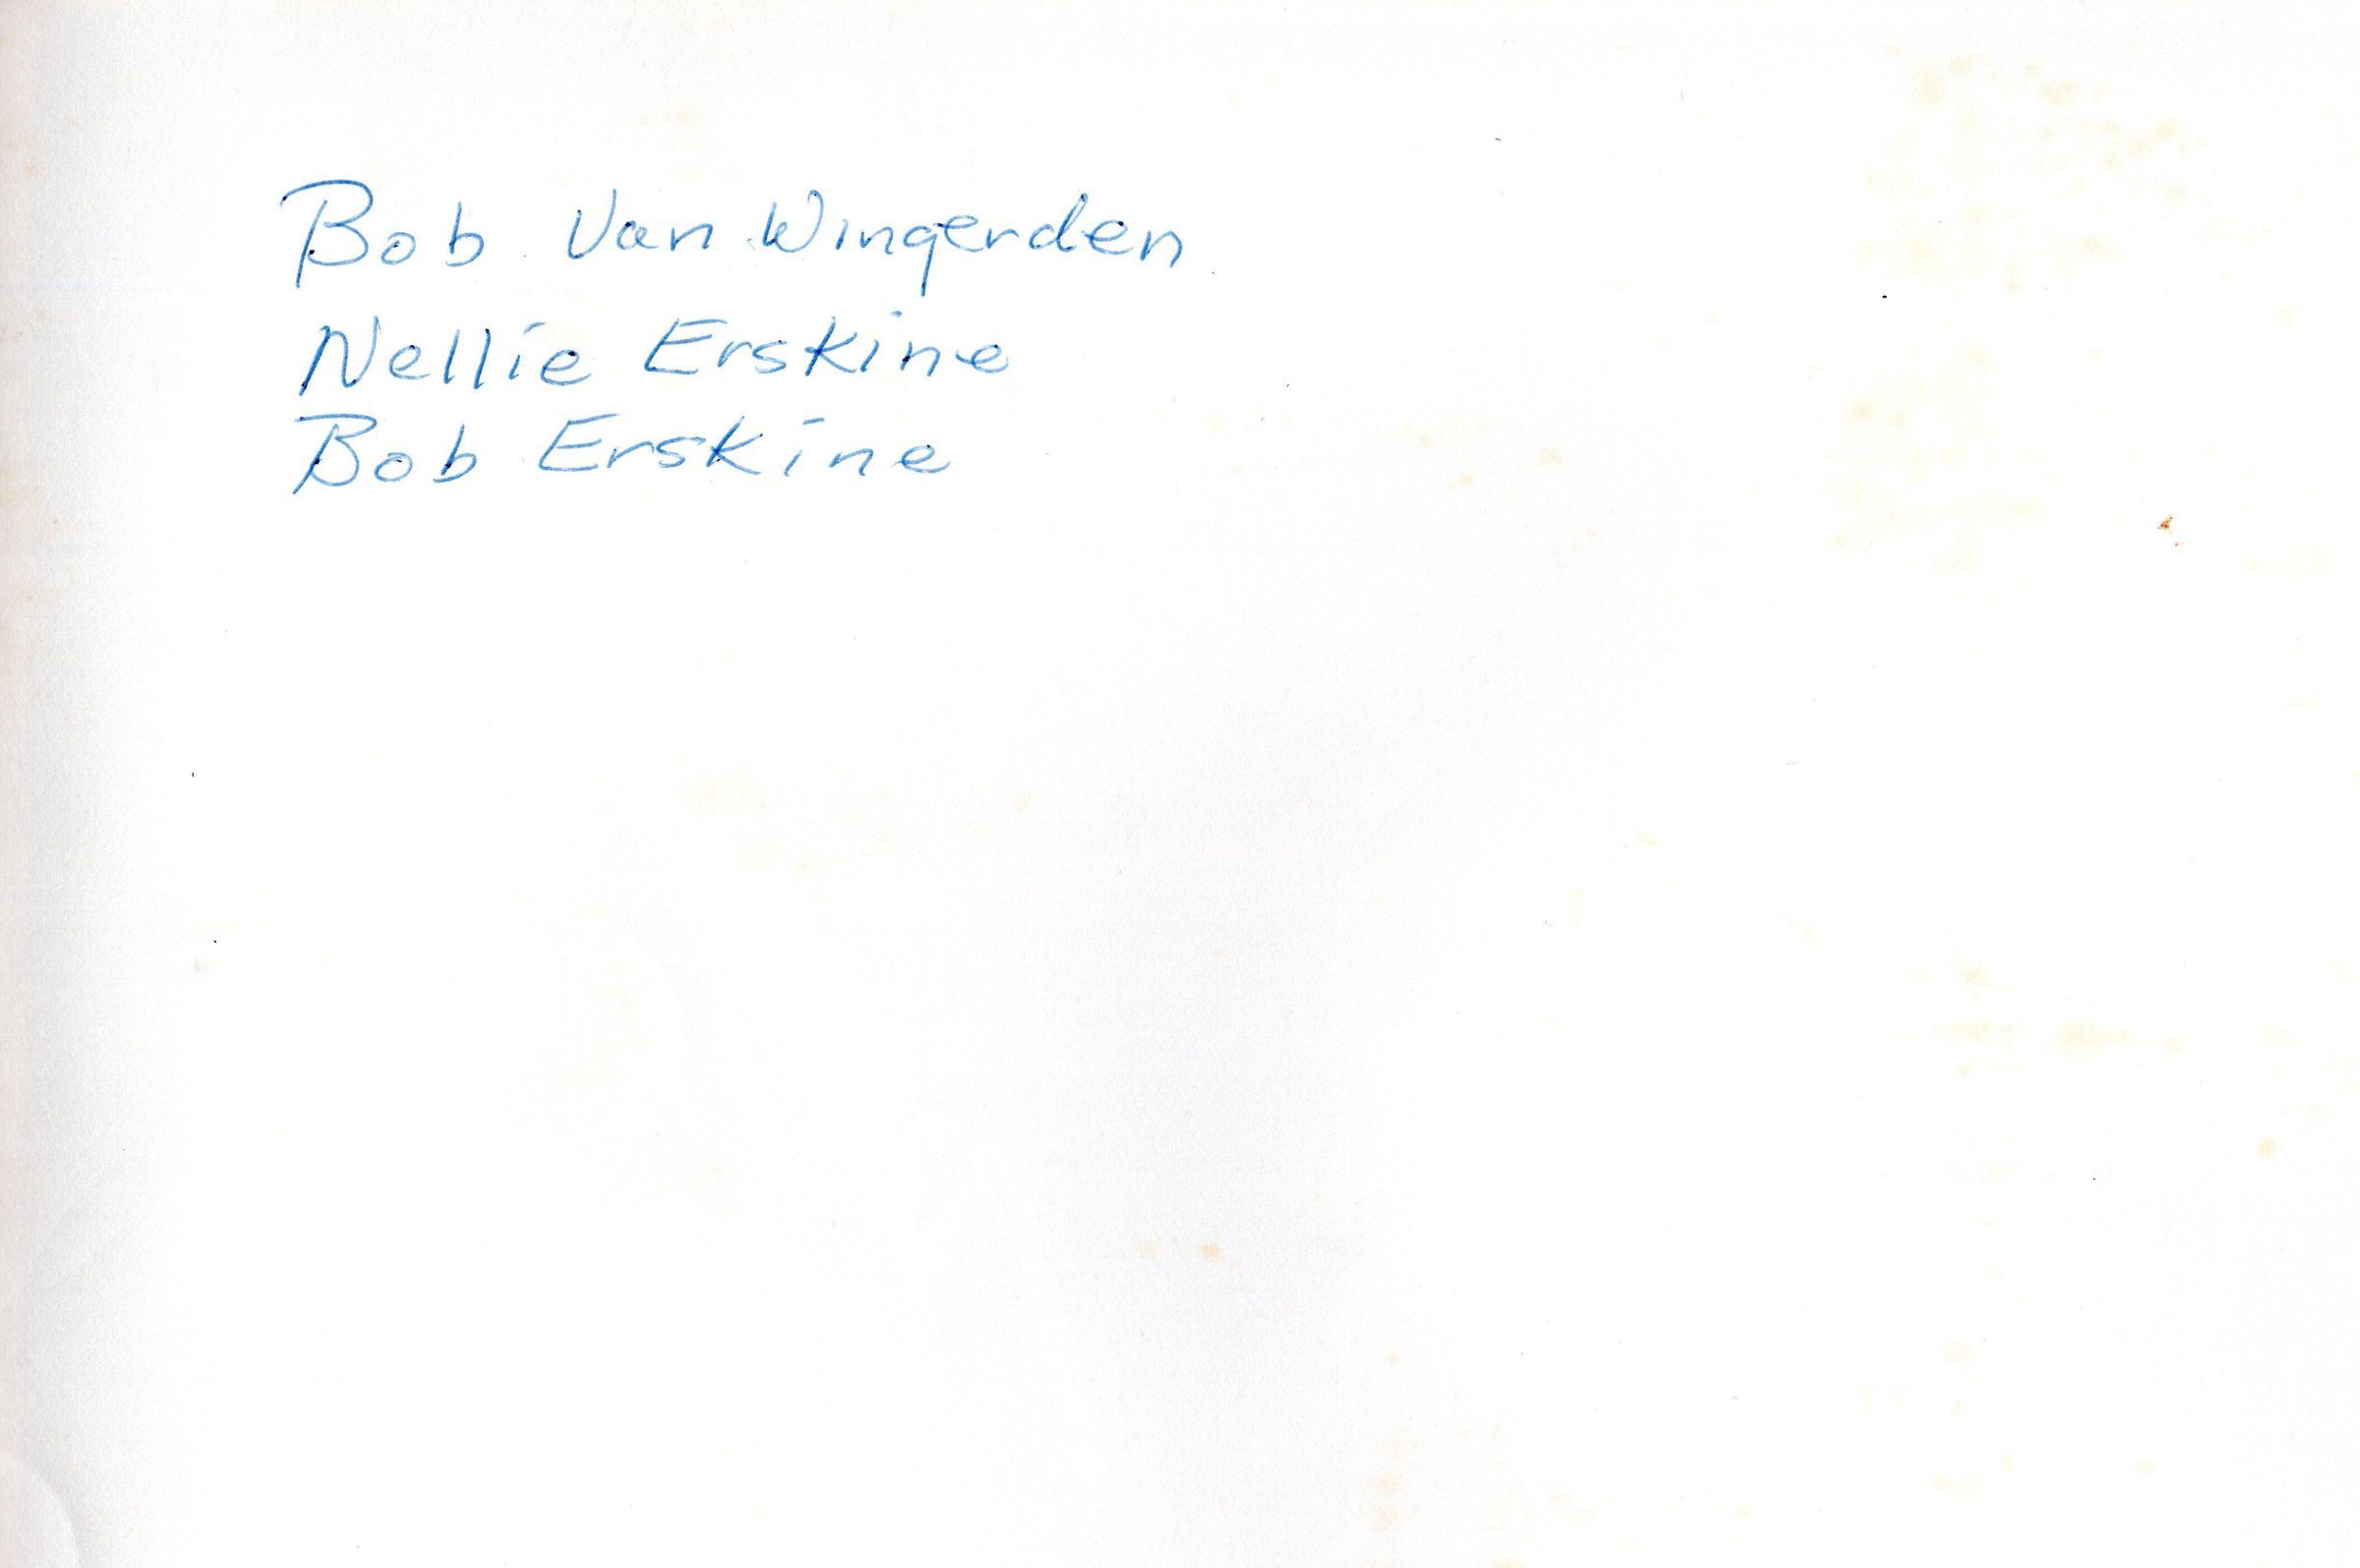 Bob Van Wingerden
Nellie Erskine
Bob Erskine